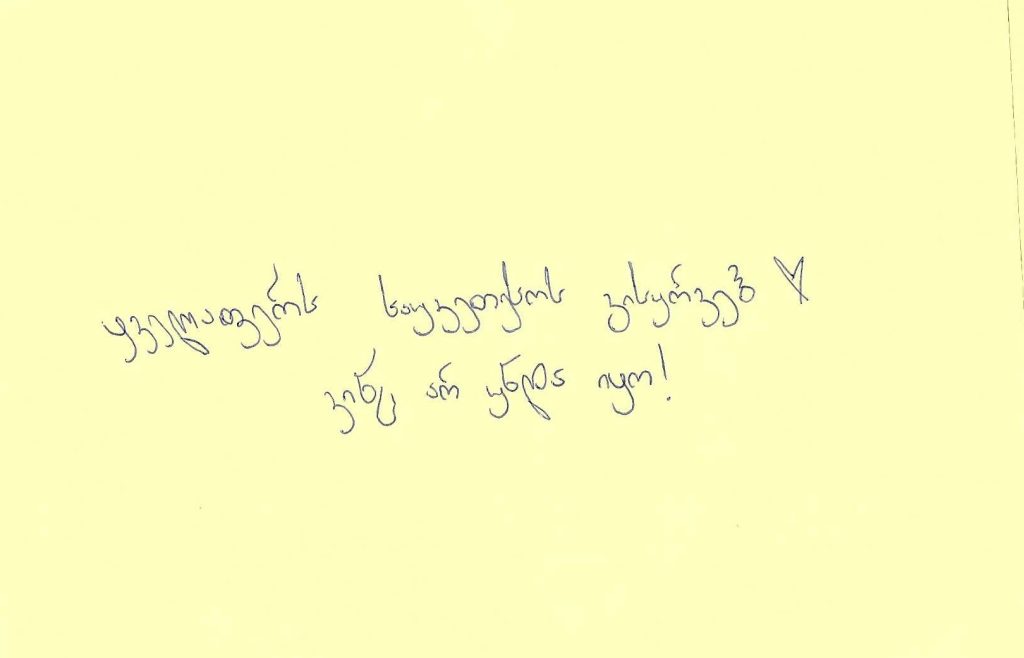 ყველაფერს საუკეთესოს გისურვებ ♡
ვინც არ უნდა იყო!